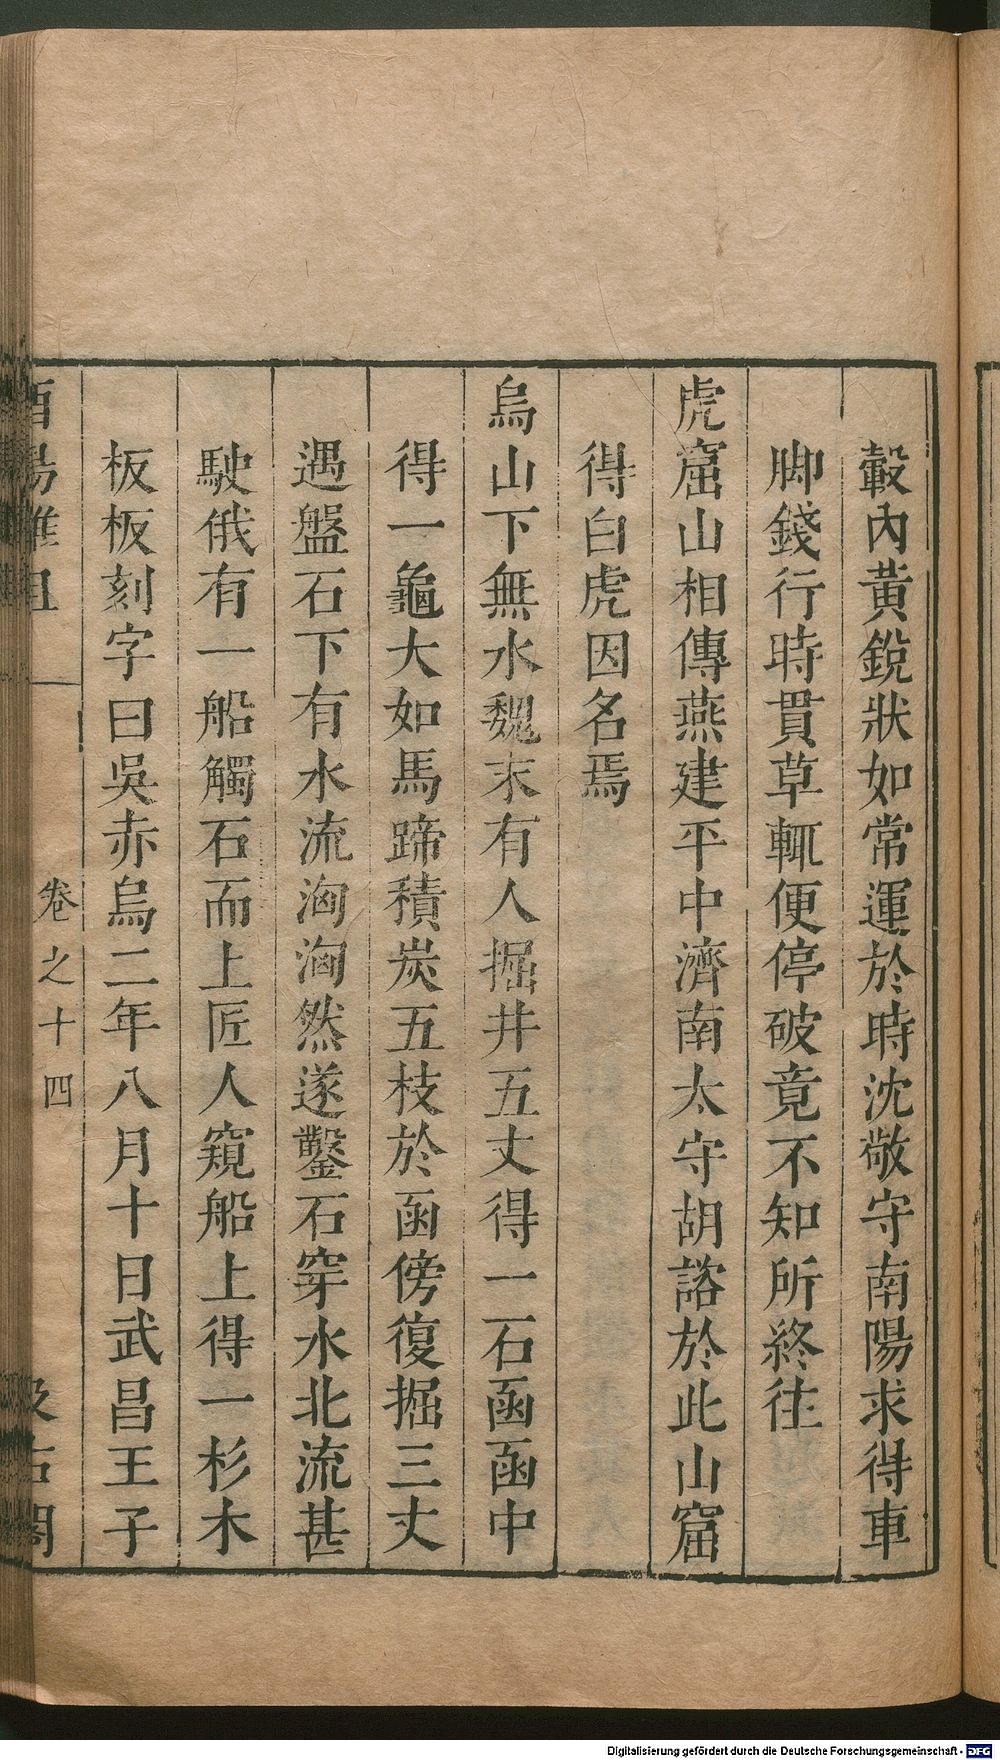 轂內黃銳狀如常運於時沈敬守南陽求得車
脚錢行時貫草輒便停破竟不知所終往
虎窟山相傳燕建平中濟南太守胡諮於此山窟
得白虎因名焉
烏山下無水魏末有人掘井五丈得一石函函中
得一龜大如馬蹄積炭五枝於函傍復掘三丈
遇盤石下有水流洶洶然遂鑿石穿水北流甚
駛俄有一船觸石而上匠人窺船上得一杉木
板板刻字曰吳赤烏二年八月十日武昌王子
酉陽雜俎 卷之十四 汲古閣
Digitalisierung gefördert durch die Deutsche Forschungsgemeinschaft - DFG